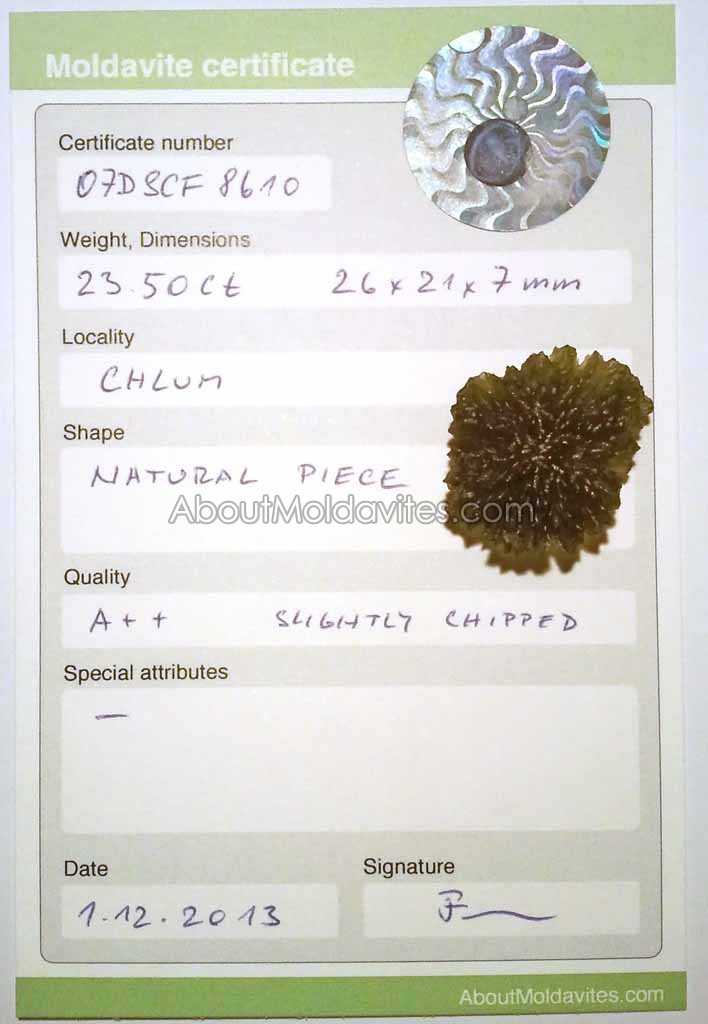 Moldavite certificate
Certificate number
07DSCF8610
Weight, Dimensions
23.50ct 26 x 21 x 7 mm
Locality
CHLUM
Shape
NATURAL PIECE
AboutMoldavites.com
Quality
A++ SLIGHTLY CHIPPED
Special attributes
—
Date
Signature
1.12.2013
AboutMoldavites.com